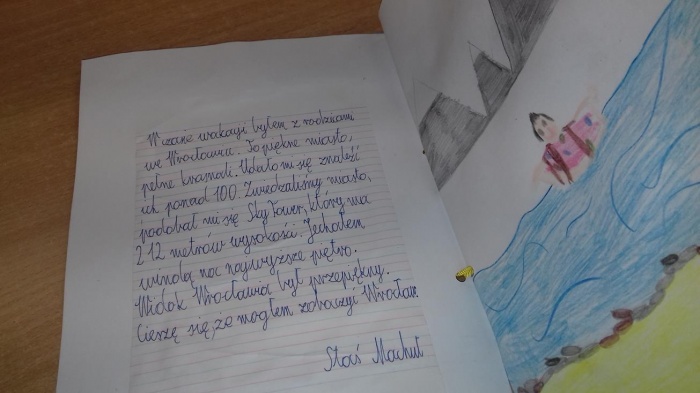 W czasie wakacji byłem z rodzicami
we Wrocławiu. To piękne miasto,
pełne krasnali. Udało mi się znaleźć
ich ponad 100. Zwiedzaliśmy miasto,
podobał mi się Sky Tower, który ma
212 metrów wysokości. Jechałem
windą na najwyższe piętro.
Widok Wrocławia był przepiękny.
Cieszę się, że mogłem zobaczyć Wrocław.
Staś Machul